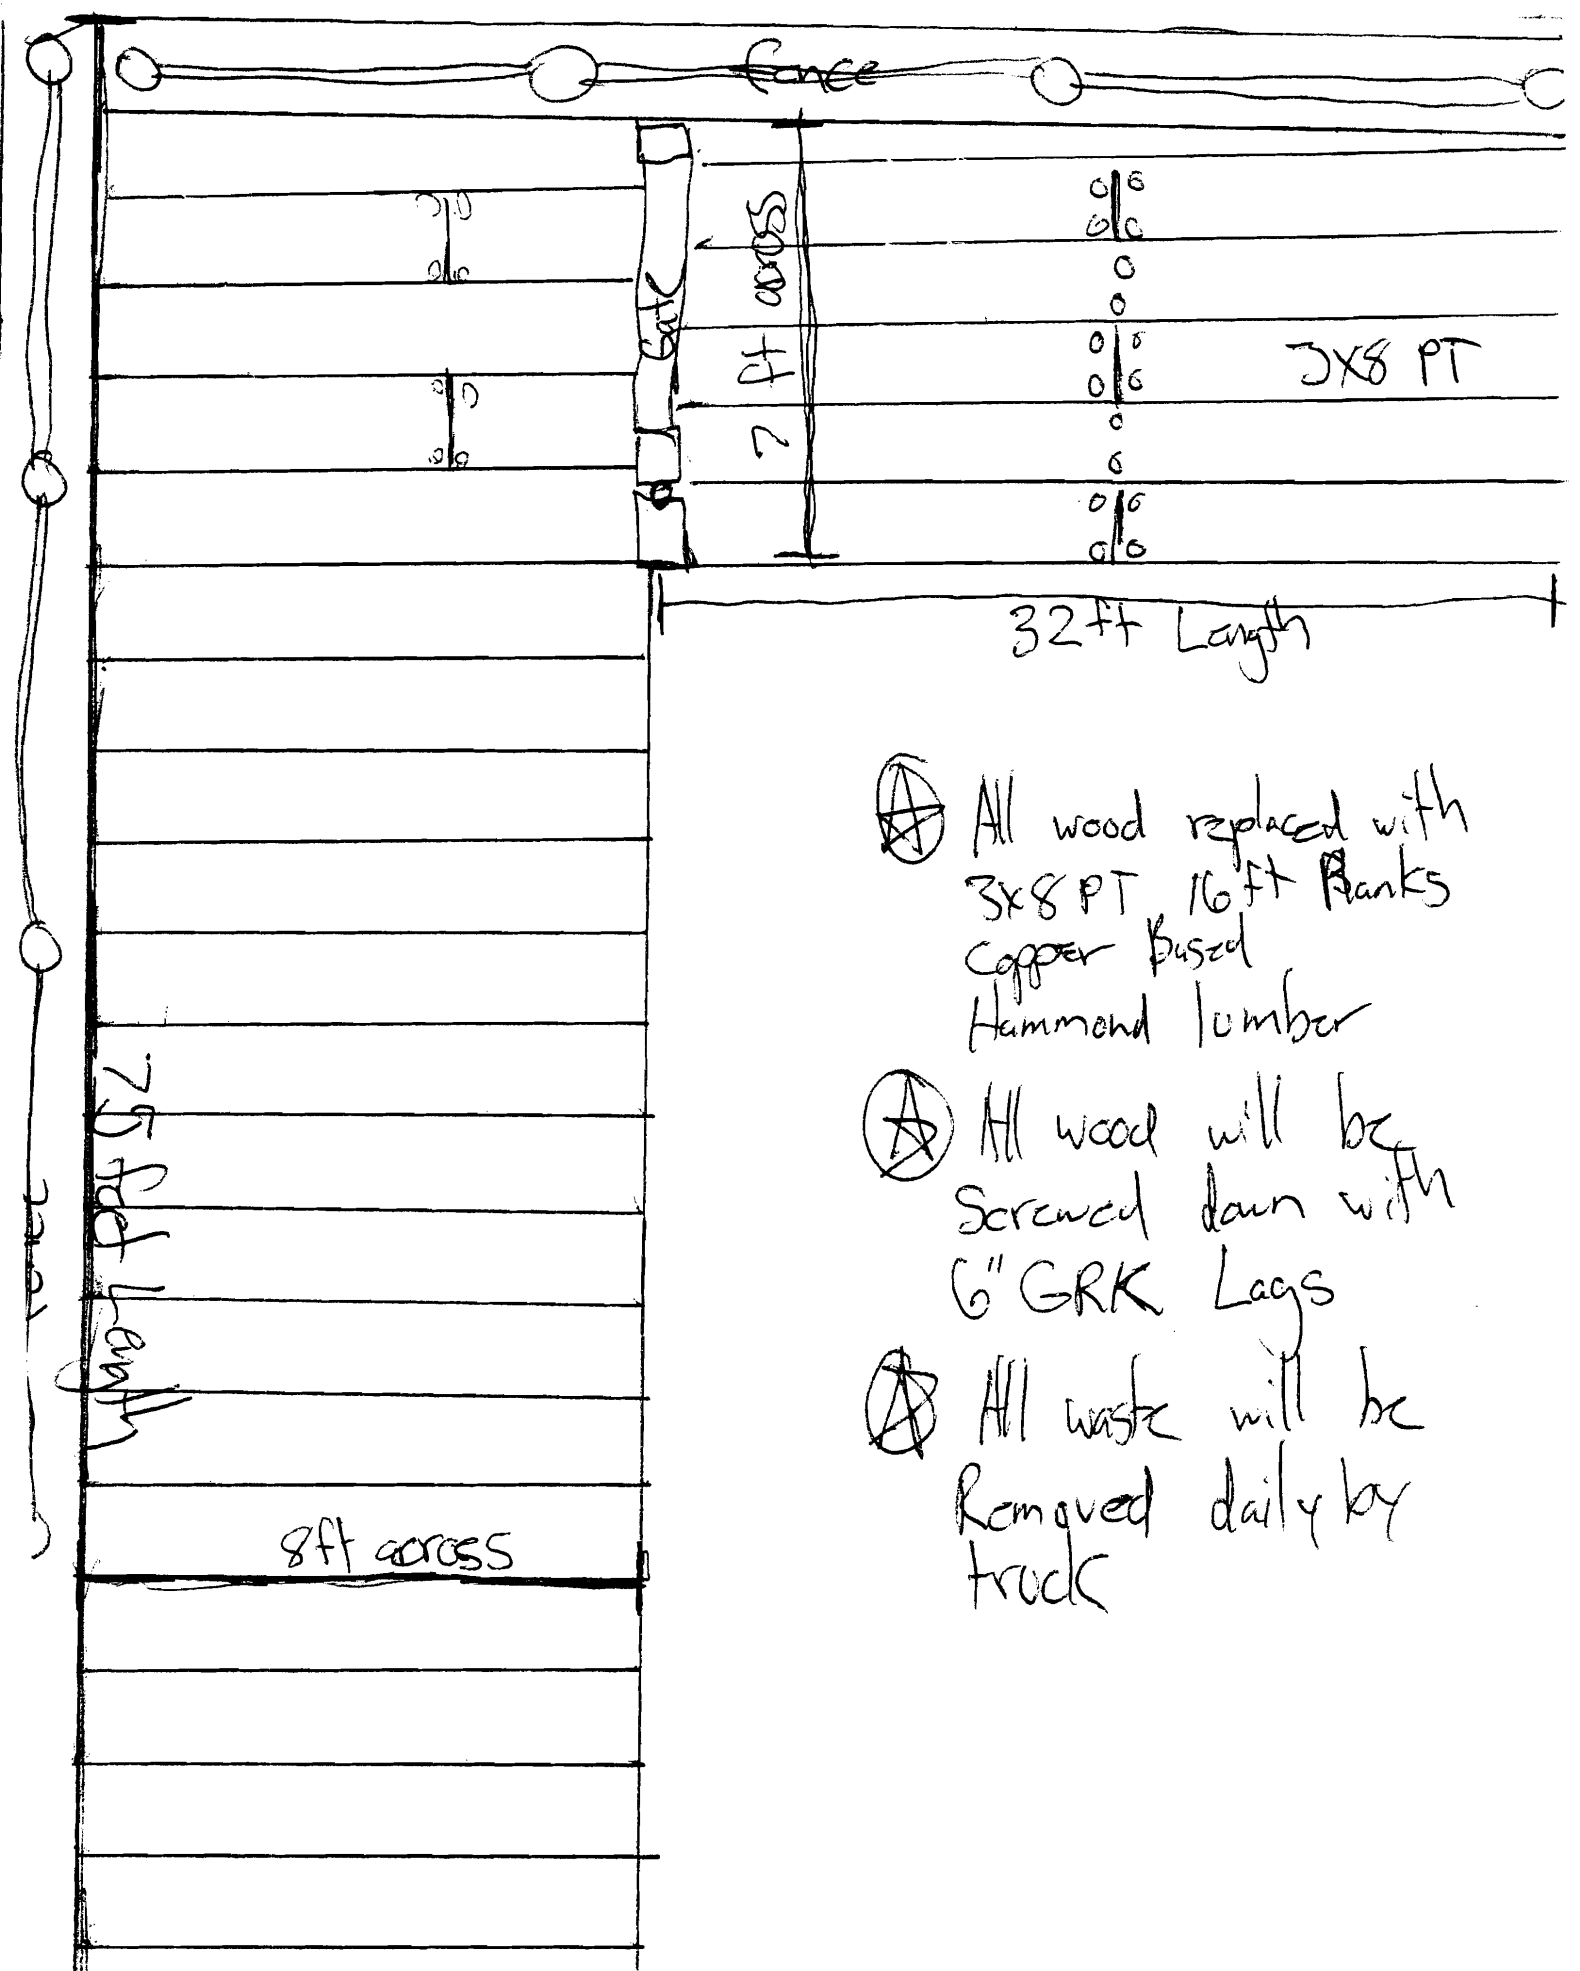 fence
Gate
7 ft across
3x8 PT
32ft Length
All wood replaced with
3x8 PT 16ft Planks
Copper Based
Hammond lumber
All wood will be
Screwed down with
6" GRK Lags
All waste will be
Removed daily by
truck
75 foot Length
fence
8ft across